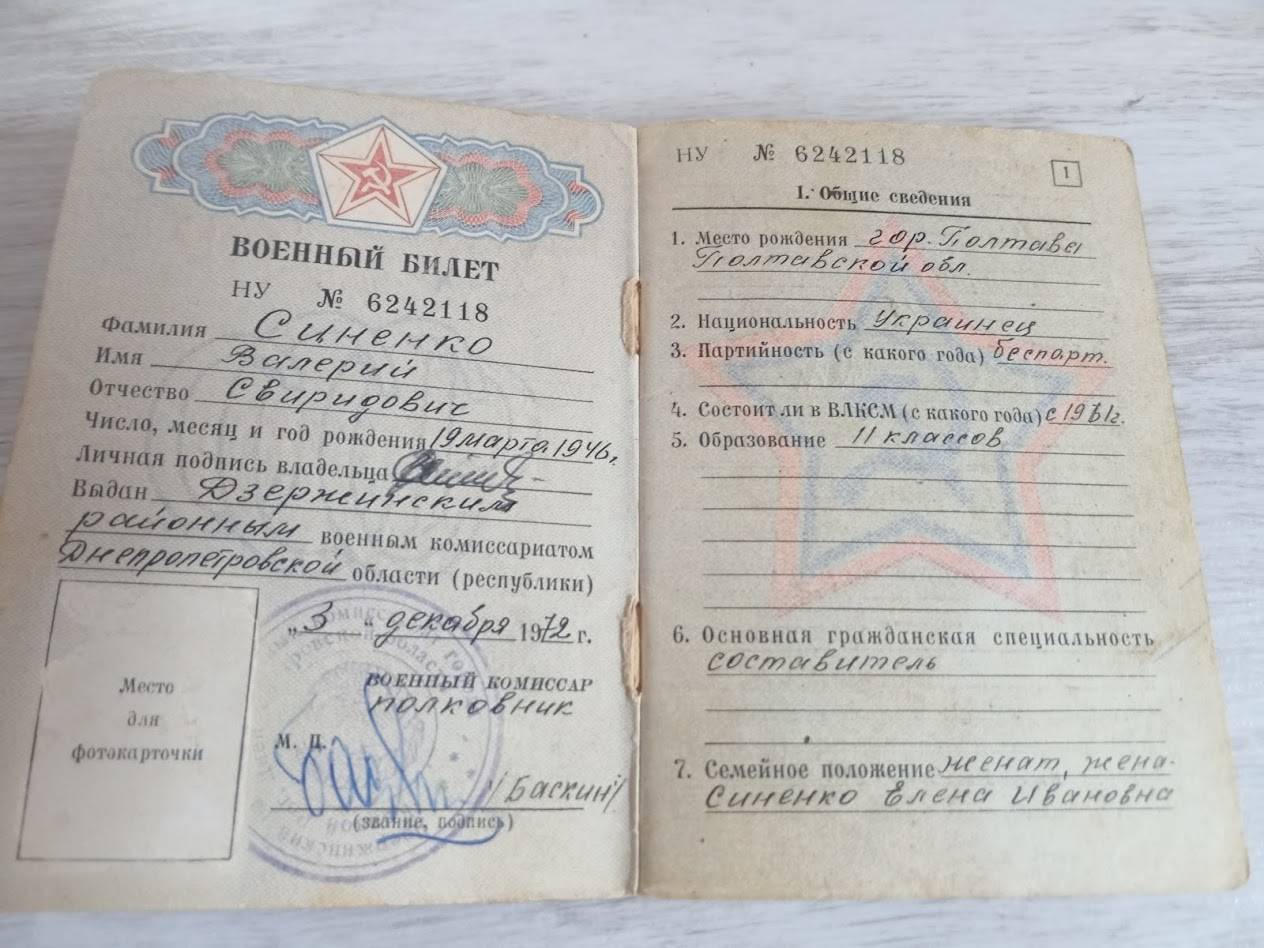 ВОЕННЫЙ БИЛЕТ
НУ № 6242118
Фамилия Синенко
Имя Валерий
Отчество Свиридович
Число, месяц и год рождения 19 марта 1946 г.
Личная подпись владельца
Выдан Дзержинским
районным военным комиссариатом
Днепропетровской области (республики)
„3“ декабря 1972 г.
ВОЕННЫЙ КОМИССАР
полковник
М. П.
/Баскин/
(звание, подпись)
Место
для
фотокарточки
НУ № 6242118
1
I. Общие сведения
1. Место рождения гор. Полтава
Полтавской обл.
2. Национальность Украинец
3. Партийность (с какого года) беспарт.
4. Состоит ли в ВЛКСМ (с какого года) с 1961г.
5. Образование 11 классов
6. Основная гражданская специальность
составитель
7. Семейное положение женат, жена-
Синенко Елена Ивановна